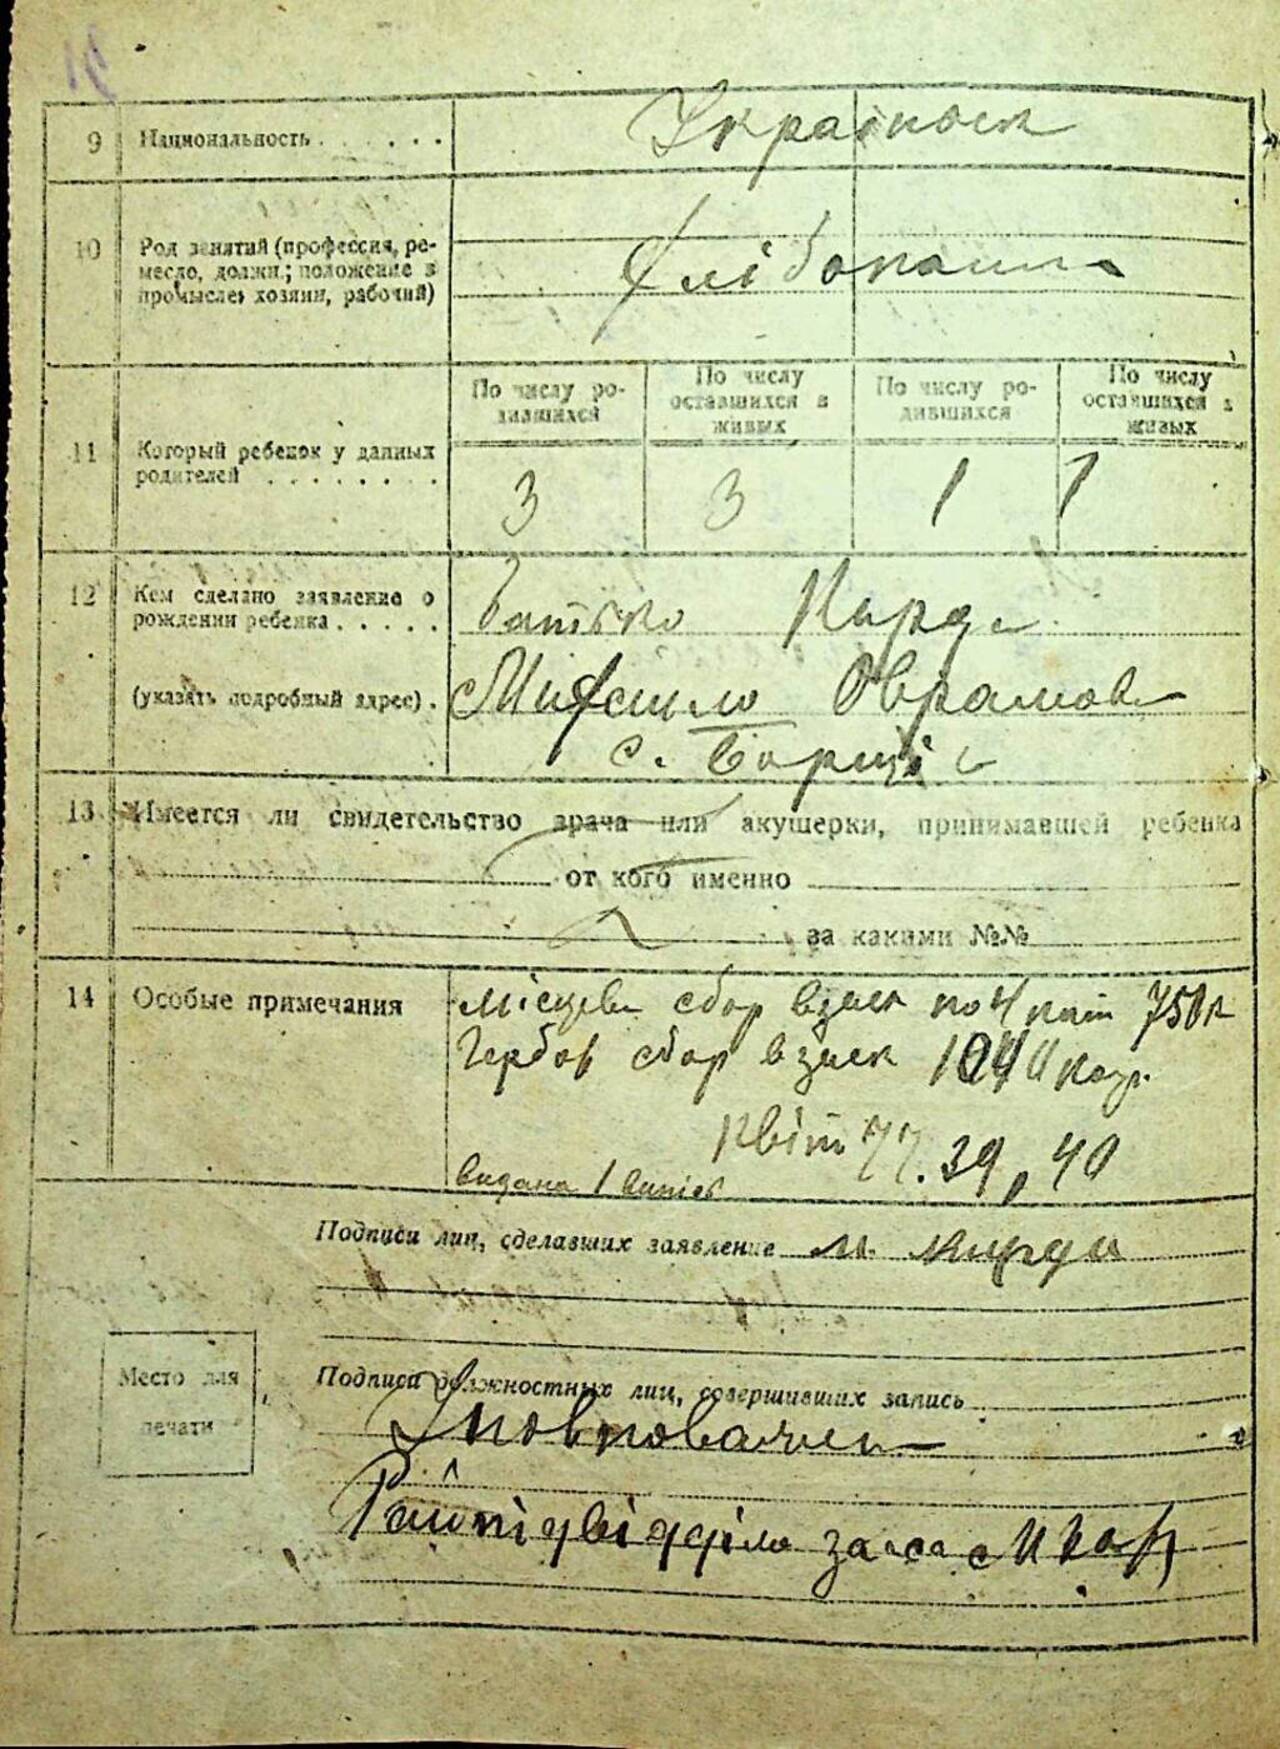 9 Национальность . . . . . .
Українськ
10 Род занятий (профессия, ре-
месло, должн.; положение в
промысле: хозяин, рабочий)
Хлібопашц
11 Который ребенок у данных
родителей . . . . . . . .
По числу ро-
дившихся
По числу
оставшихся в
живых
По числу ро-
дившихся
По числу
оставшихся в
живых
3 3 1 1
12 Кем сделано заявление о
рождении ребенка . . . . .
(указать подробный адрес) .
Батько Кирда
Михайло Оврамов
с. Борщів
13 Имеется ли свидетельство врача или акушерки, принимавшей ребенка
от кого именно
за какими №№
14 Особые примечания
Місцев сбор взыск по 4 750 к
Гербов сбор взыск коп.
квіт 77. 39, 40
видана 1 випись
Подписи лиц, сделавших заявление М. Кирда
Место для
печати
Подписи должностных лиц, совершивших запись
Уповноважен
Райпідвідділа загса